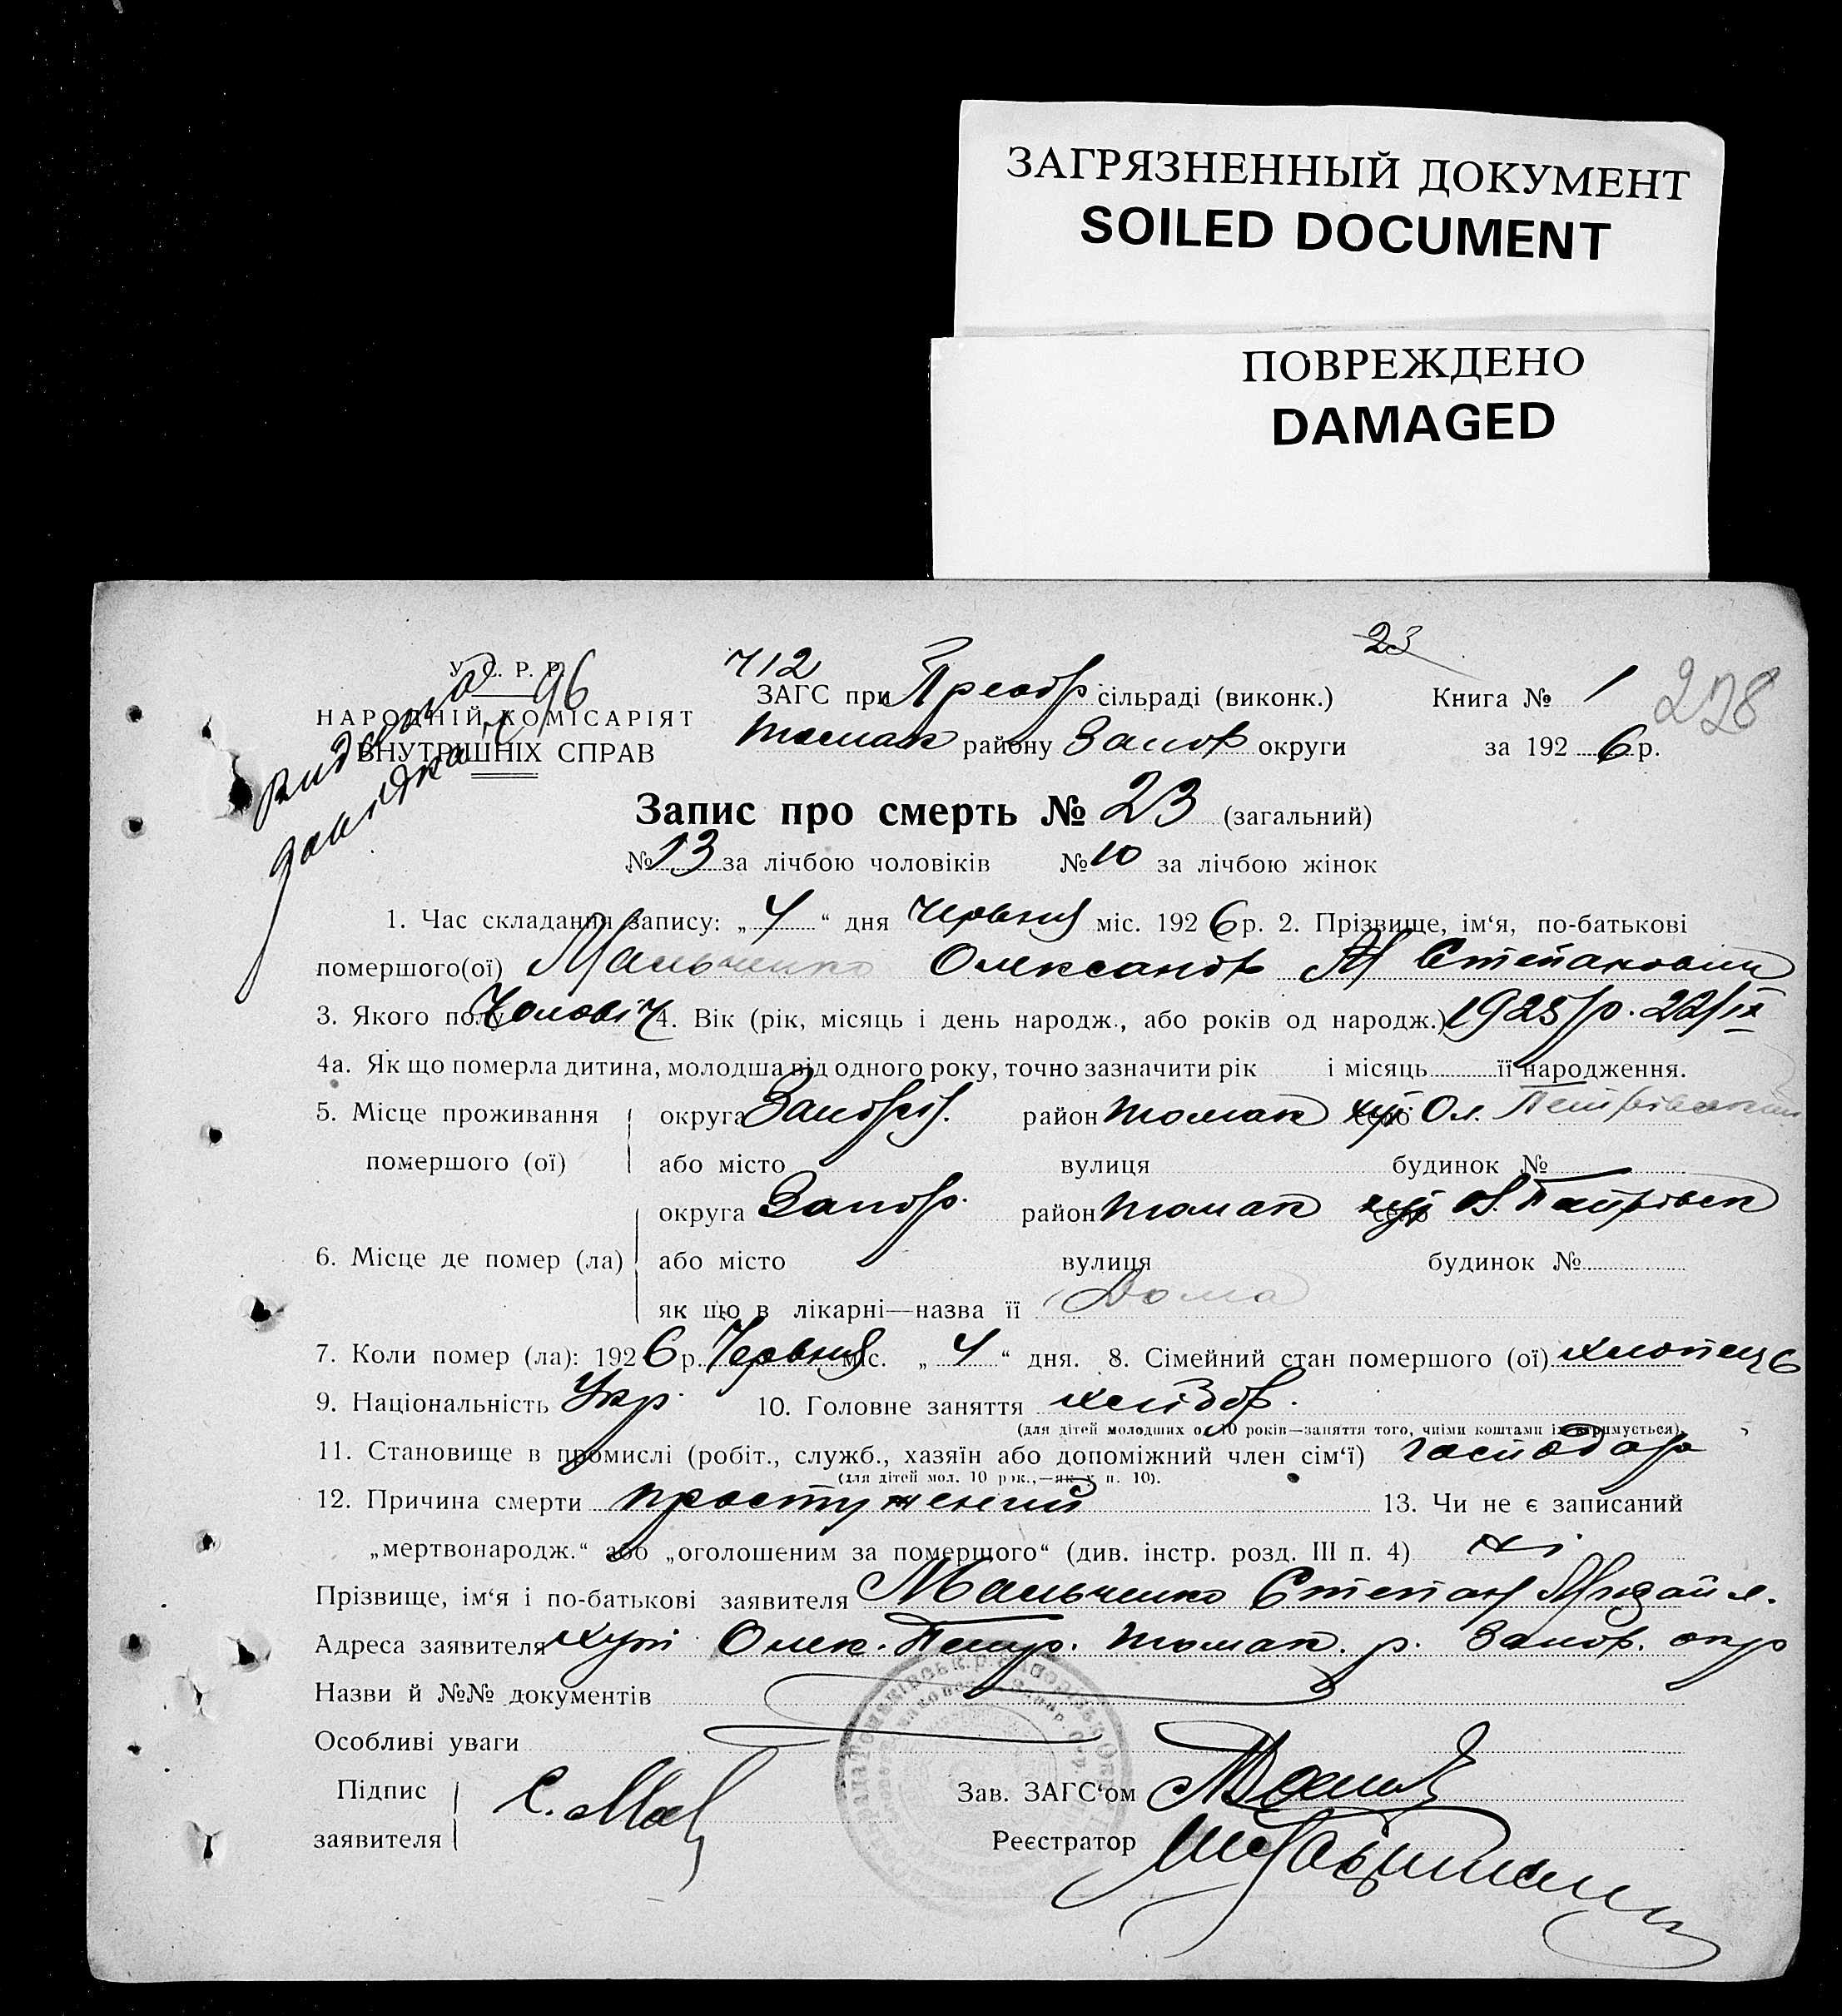 ЗАГРЯЗНЕННЫЙ ДОКУМЕНТ
SOILED DOCUMENT
ПОВРЕЖДЕНО
DAMAGED
23
У. С. Р. Р. 712
ЗАГС при Преобр сільраді (виконк.) Книга № 1 228
НАРОДНІЙ КОМІСАРІЯТ
Токмак району Запор округи за 192 6 р.
ВНУТРІШНІХ СПРАВ
видана
довідка ч 96
Запис про смерть № 23 (загальний)
№ 13 за лічбою чоловіків № 10 за лічбою жінок
1. Час складання запису: „ 4 “ дня Червня міс. 192 6 р. 2. Прізвище, ім‘я, по-батькові
помершого(ої) Мальченко Олександр Степанович
3. Якого полу Чоловіч 4. Вік (рік, місяць і день народж., або років од народж.) 1925 р. 22/IX
4а. Як що померла дитина, молодша від одного року, точно зазначити рік і місяць її народження.
5. Місце проживання округа Запоріз. район Токмак село хут Ол. Петрівський
помершого (ої) або місто вулиця будинок №
округа Запор. район Токмак село хут Ол. Петрівськ
6. Місце де помер (ла) або місто вулиця будинок №
як що в лікарні—назва її Дома
7. Коли помер (ла): 192 6 р. Червня міс. „ 4 “ дня. 8. Сімейний стан помершого (ої) хлопець
9. Національність Укр. 10. Головне заняття хлібор.
(для дітей молодших од 10 років—заняття того, чиїми коштами їх утримується).
11. Становище в промислі (робіт., служб., хазяїн або допоміжний член сім‘ї) господар
(для дітей мол. 10 рок.,—як у п. 10).
12. Причина смерти простужений 13. Чи не є записаний
„мертвонародж.“ або „оголошеним за помершого“ (див. інстр. розд. III п. 4) ні
Прізвище, ім‘я і по-батькові заявителя Мальченко Степан Михайл.
Адреса заявителя хут Олек. Петр. Токмак. р. Запор. окр
Назви й №№ документів
Особливі уваги
Підпис С. Мал Зав. ЗАГС‘ом
заявителя Реєстратор